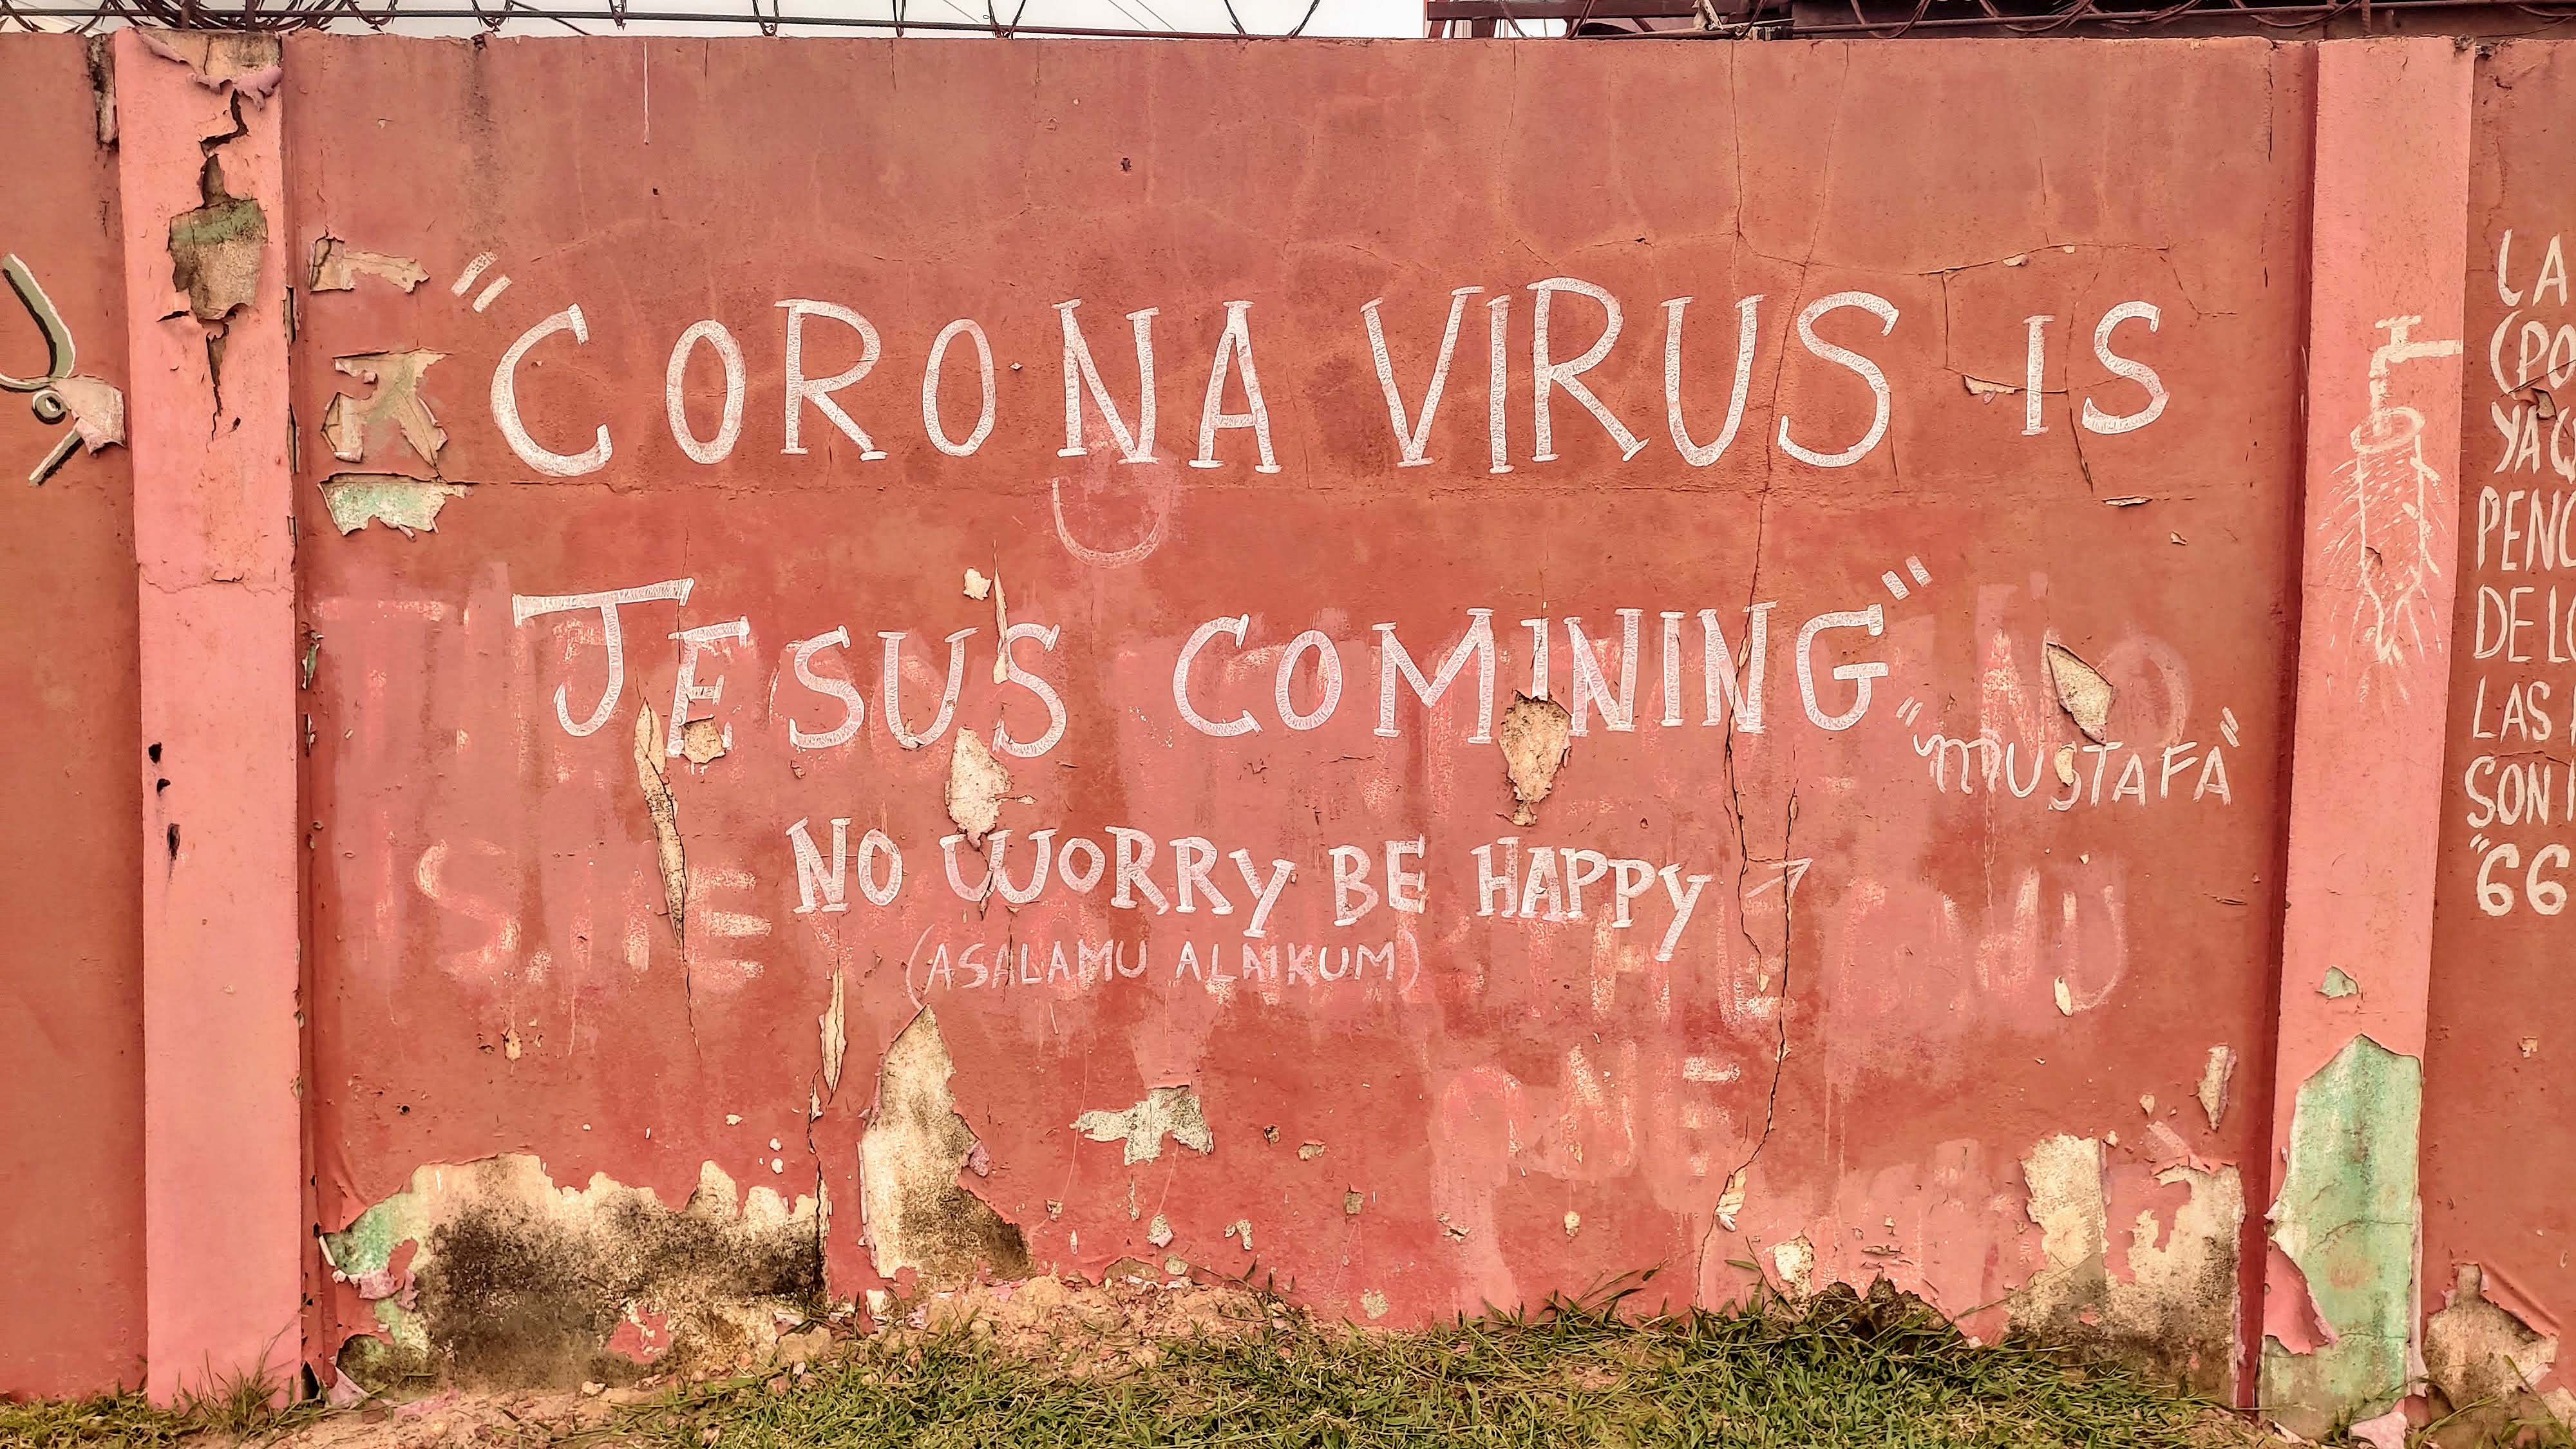 "CORONA VIRUS IS
JESUS COMINING"
"MUSTAFA"
NO WORRY BE HAPPY
(ASALAMU ALAIKUM)
ONE
LA
(PO
YA
PENC
DE LO
LAS
SON
"66